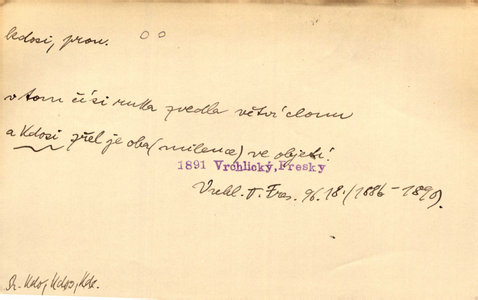 kdosi, pron.
v tom čísi ruka zvedla větví clonu
a kdosi zřel je oba (milence) ve objetí.
1891 Vrchlický, Fresky
Vrchl. Fres. 96. 18. (1886–1890).
Kdo, Kdos, Kde.